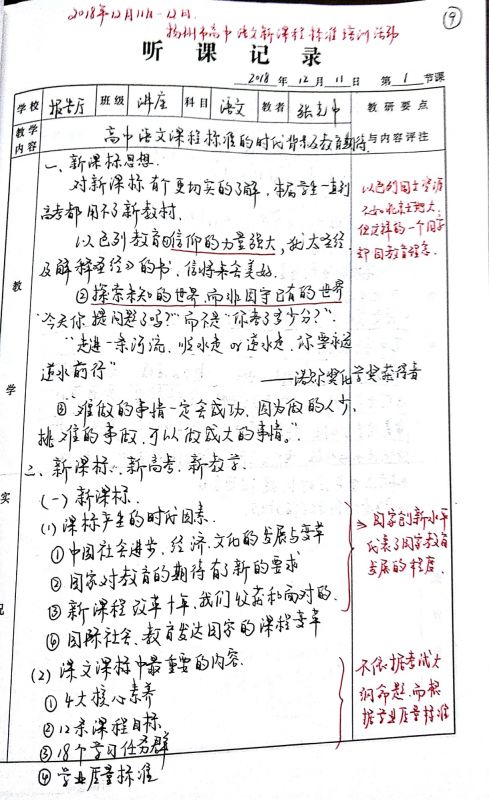 ⑨
2018年12月11日-12日.
扬州市高中语文新课程标准培训活动
听课记录
2018年12月11日 第1节课
学校 报告厅 班级 讲座 科目 语文 教者 教研要点
教学内容 高中语文课程标准的时代背景及教育期待 与内容评注
教学实况
一、新课标思想.
对新课标有个更切实的了解，本届学生一直到
高考都用不了新教材.
以色列教育①信仰的力量强大，
及解释圣经》的书，信将来会美好.
②探索未知的世界而非固守已有的世界
"今天你提问题了吗?"而不是"你考了多少分?".
"走进一条河流，顺水走 or 逆水走，你要永远
逆水前行"
——诺尔奖化学奖获得者
③难做的事情一定会成功，因为做的人少，
挑难的事做，可以做成大的事情。"
二、新课标、新高考、新教学.
(一) 新课标.
(1) 课标产生的时代因素.
①中国社会进步，经济、文化的发展与变革
②国家对教育的期待有了新的要求
③新课程改革十年，我们收获和面对的.
④国际社会、教育发达国家的课程变革
(2) 课文课标中最重要的内容.
①4大核心素养
②12条课程目标
③18个学习任务群
④学业质量标准
以色列国土资源
不如北京土地大,
但这样的一个国家
却因教育
⇒国家创新水平
代表了国家教育
发展的程度.
不依据考试大
纲命题，而根
据学业质量标准